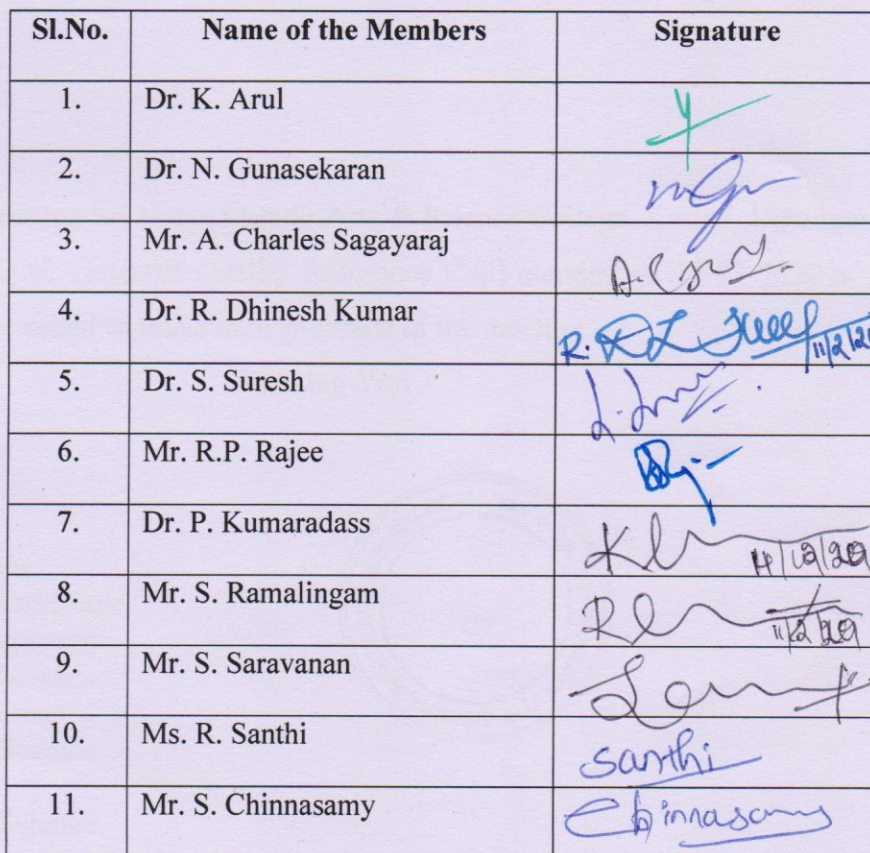 Sl.No. Name of the Members Signature
1. Dr. K. Arul
2. Dr. N. Gunasekaran
3. Mr. A. Charles Sagayaraj
4. Dr. R. Dhinesh Kumar
5. Dr. S. Suresh
6. Mr. R.P. Rajee
7. Dr. P. Kumaradass
8. Mr. S. Ramalingam
9. Mr. S. Saravanan
10. Ms. R. Santhi Santhi
11. Mr. S. Chinnasamy Chinnasamy